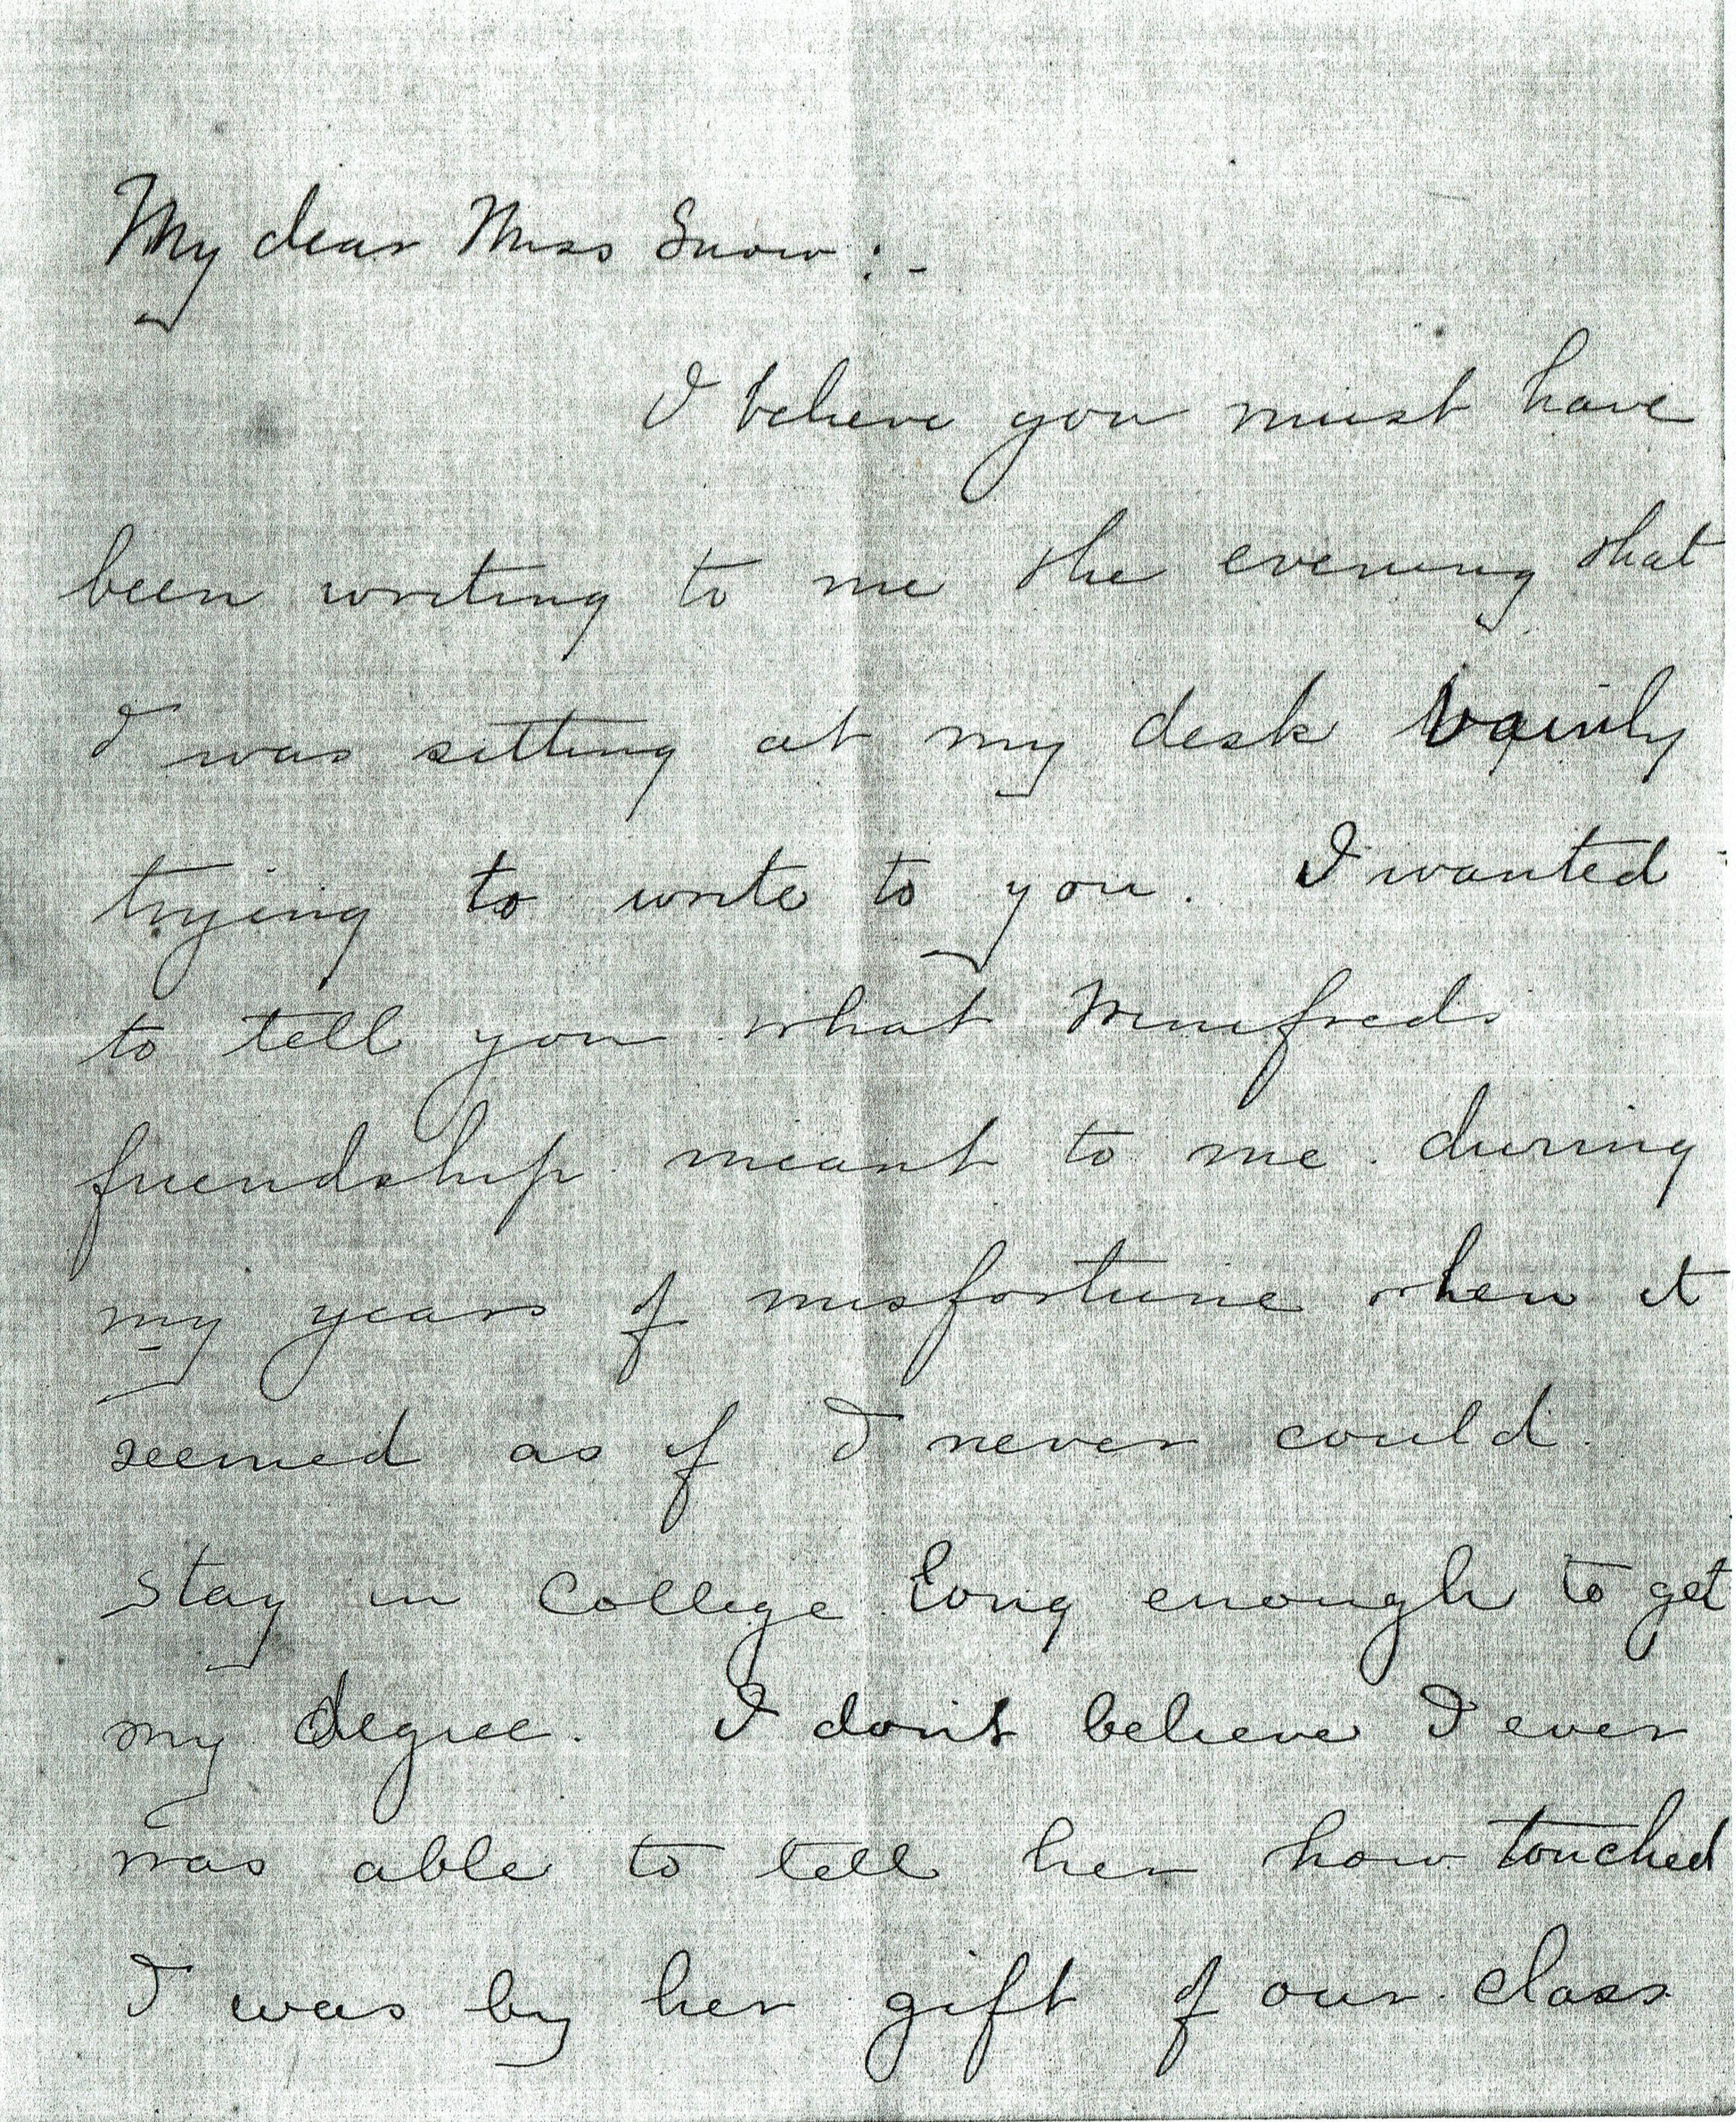 My dear Miss Snow:-
I believe you must have
been writing to me the evening that
I was sitting at my desk vainly
trying to write to you. I wanted
to tell you what Winifreds
friendship meant to me during
my years of misfortune when it
seemed as if I never could
stay in college long enough to get
my degree. I don't believe I ever
was able to tell her how touched
I was by her gift of our class